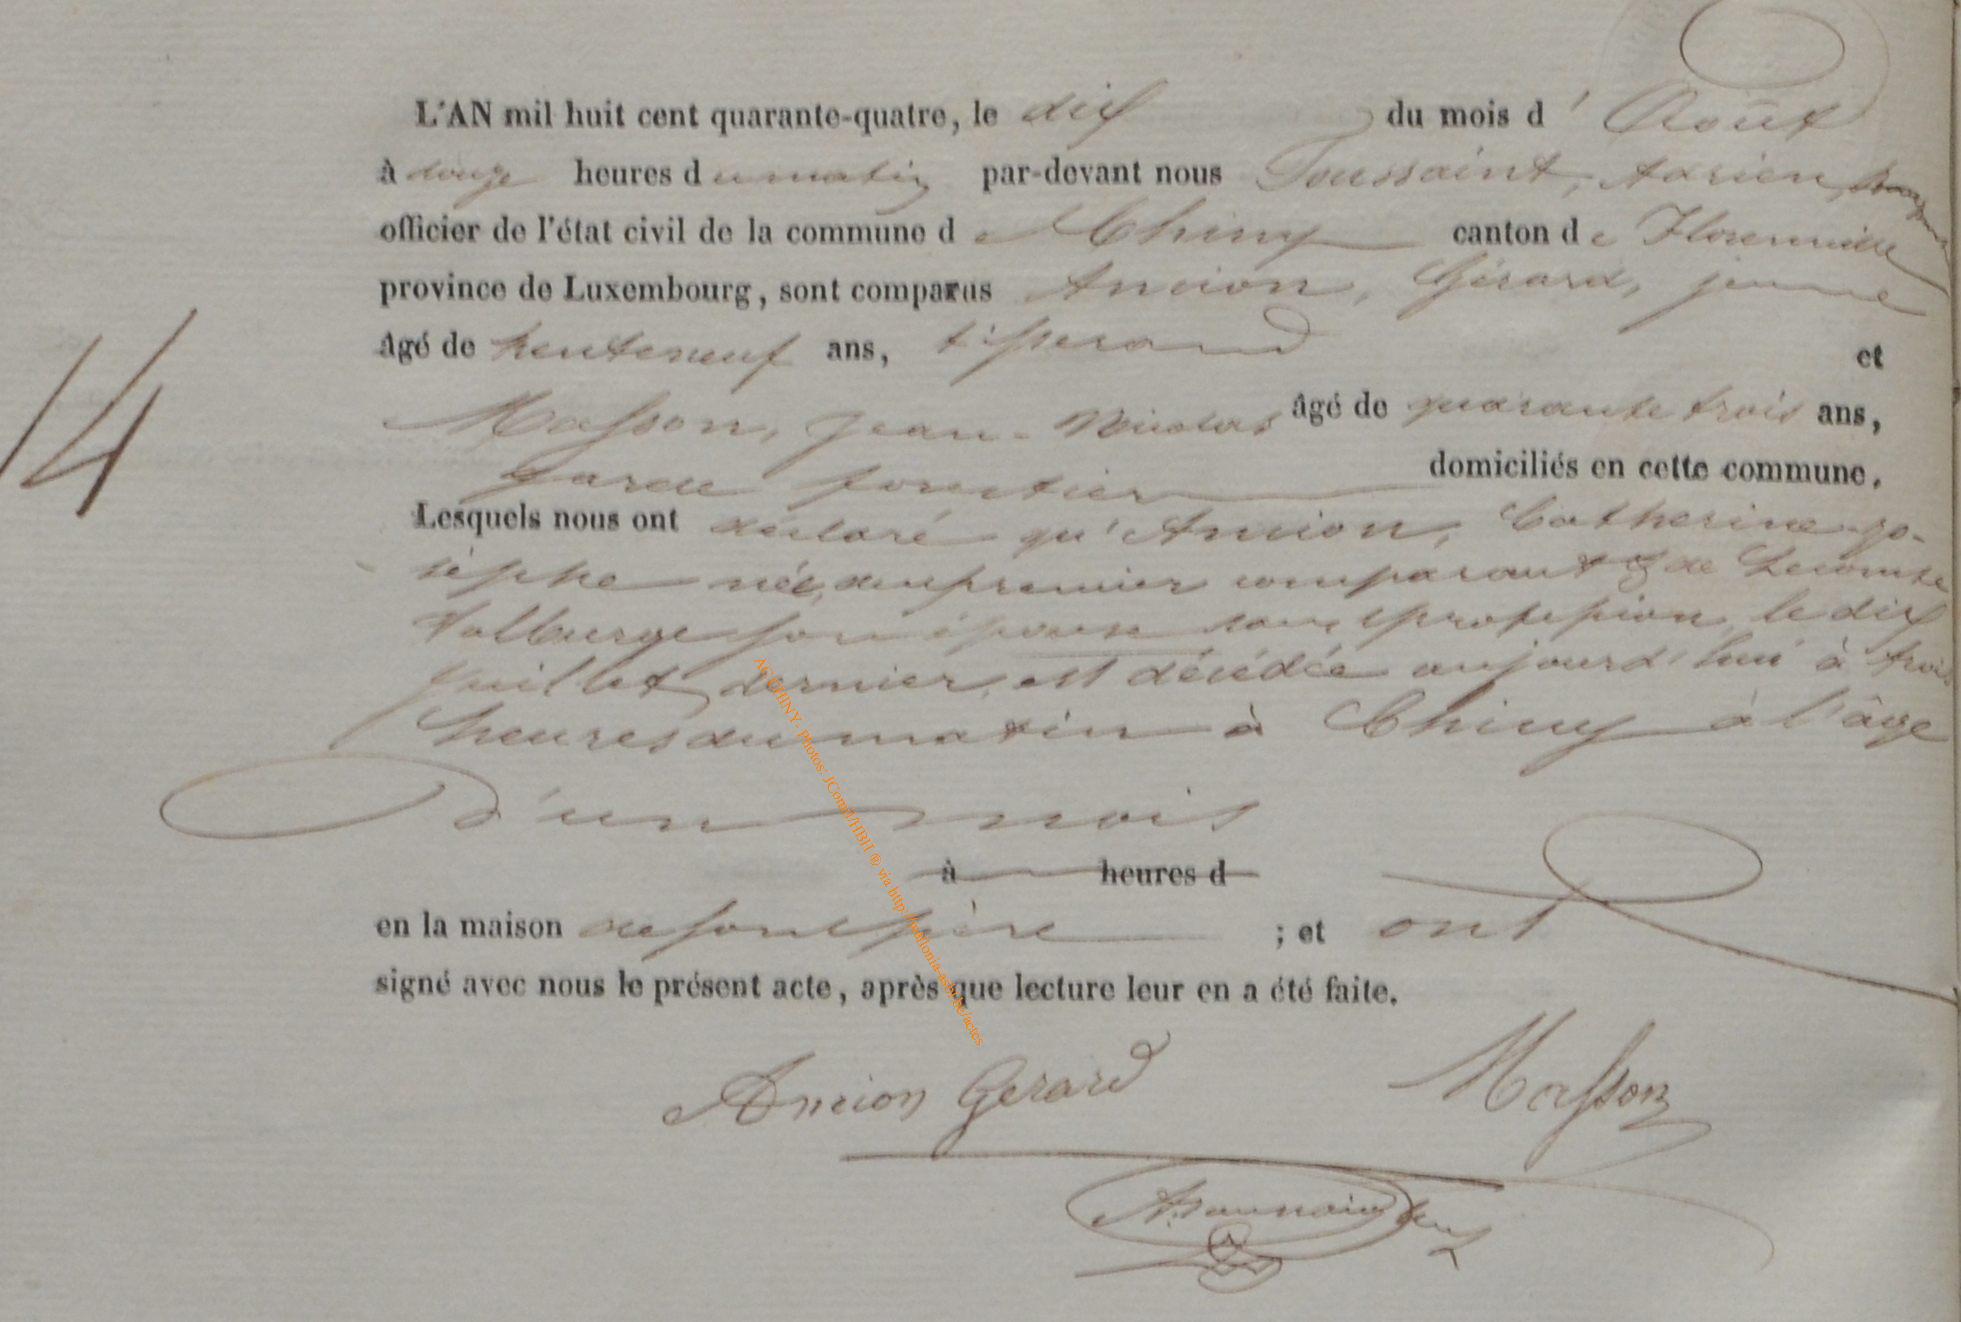 L'AN mil huit cent quarante-quatre, le dix du mois d'Août
à heures du matin par-devant nous Toussaint, Adrien,
officier de l'état civil de la commune de Chiny canton de Florenville
province de Luxembourg, sont comparus Ancion, Gérard, jeune
âgé de trente neuf ans, tisserand et
Masson, Jean-Nicolas âgé de quarante trois ans,
garde forestier domiciliés en cette commune.
Lesquels nous ont déclaré qu'Ancion, Catherine-Jo-
séphe née, du premier comparant & de Lecomte
Valburge son épouse sans profession, le dix
juillet dernier, est décédée aujourd'hui à trois
heures du matin à Chiny à l'âge
d'un mois
à heures d
en la maison de son père ; et ont
signé avec nous le présent acte, après que lecture leur en a été faite.
Ancion Gerard Masson
14